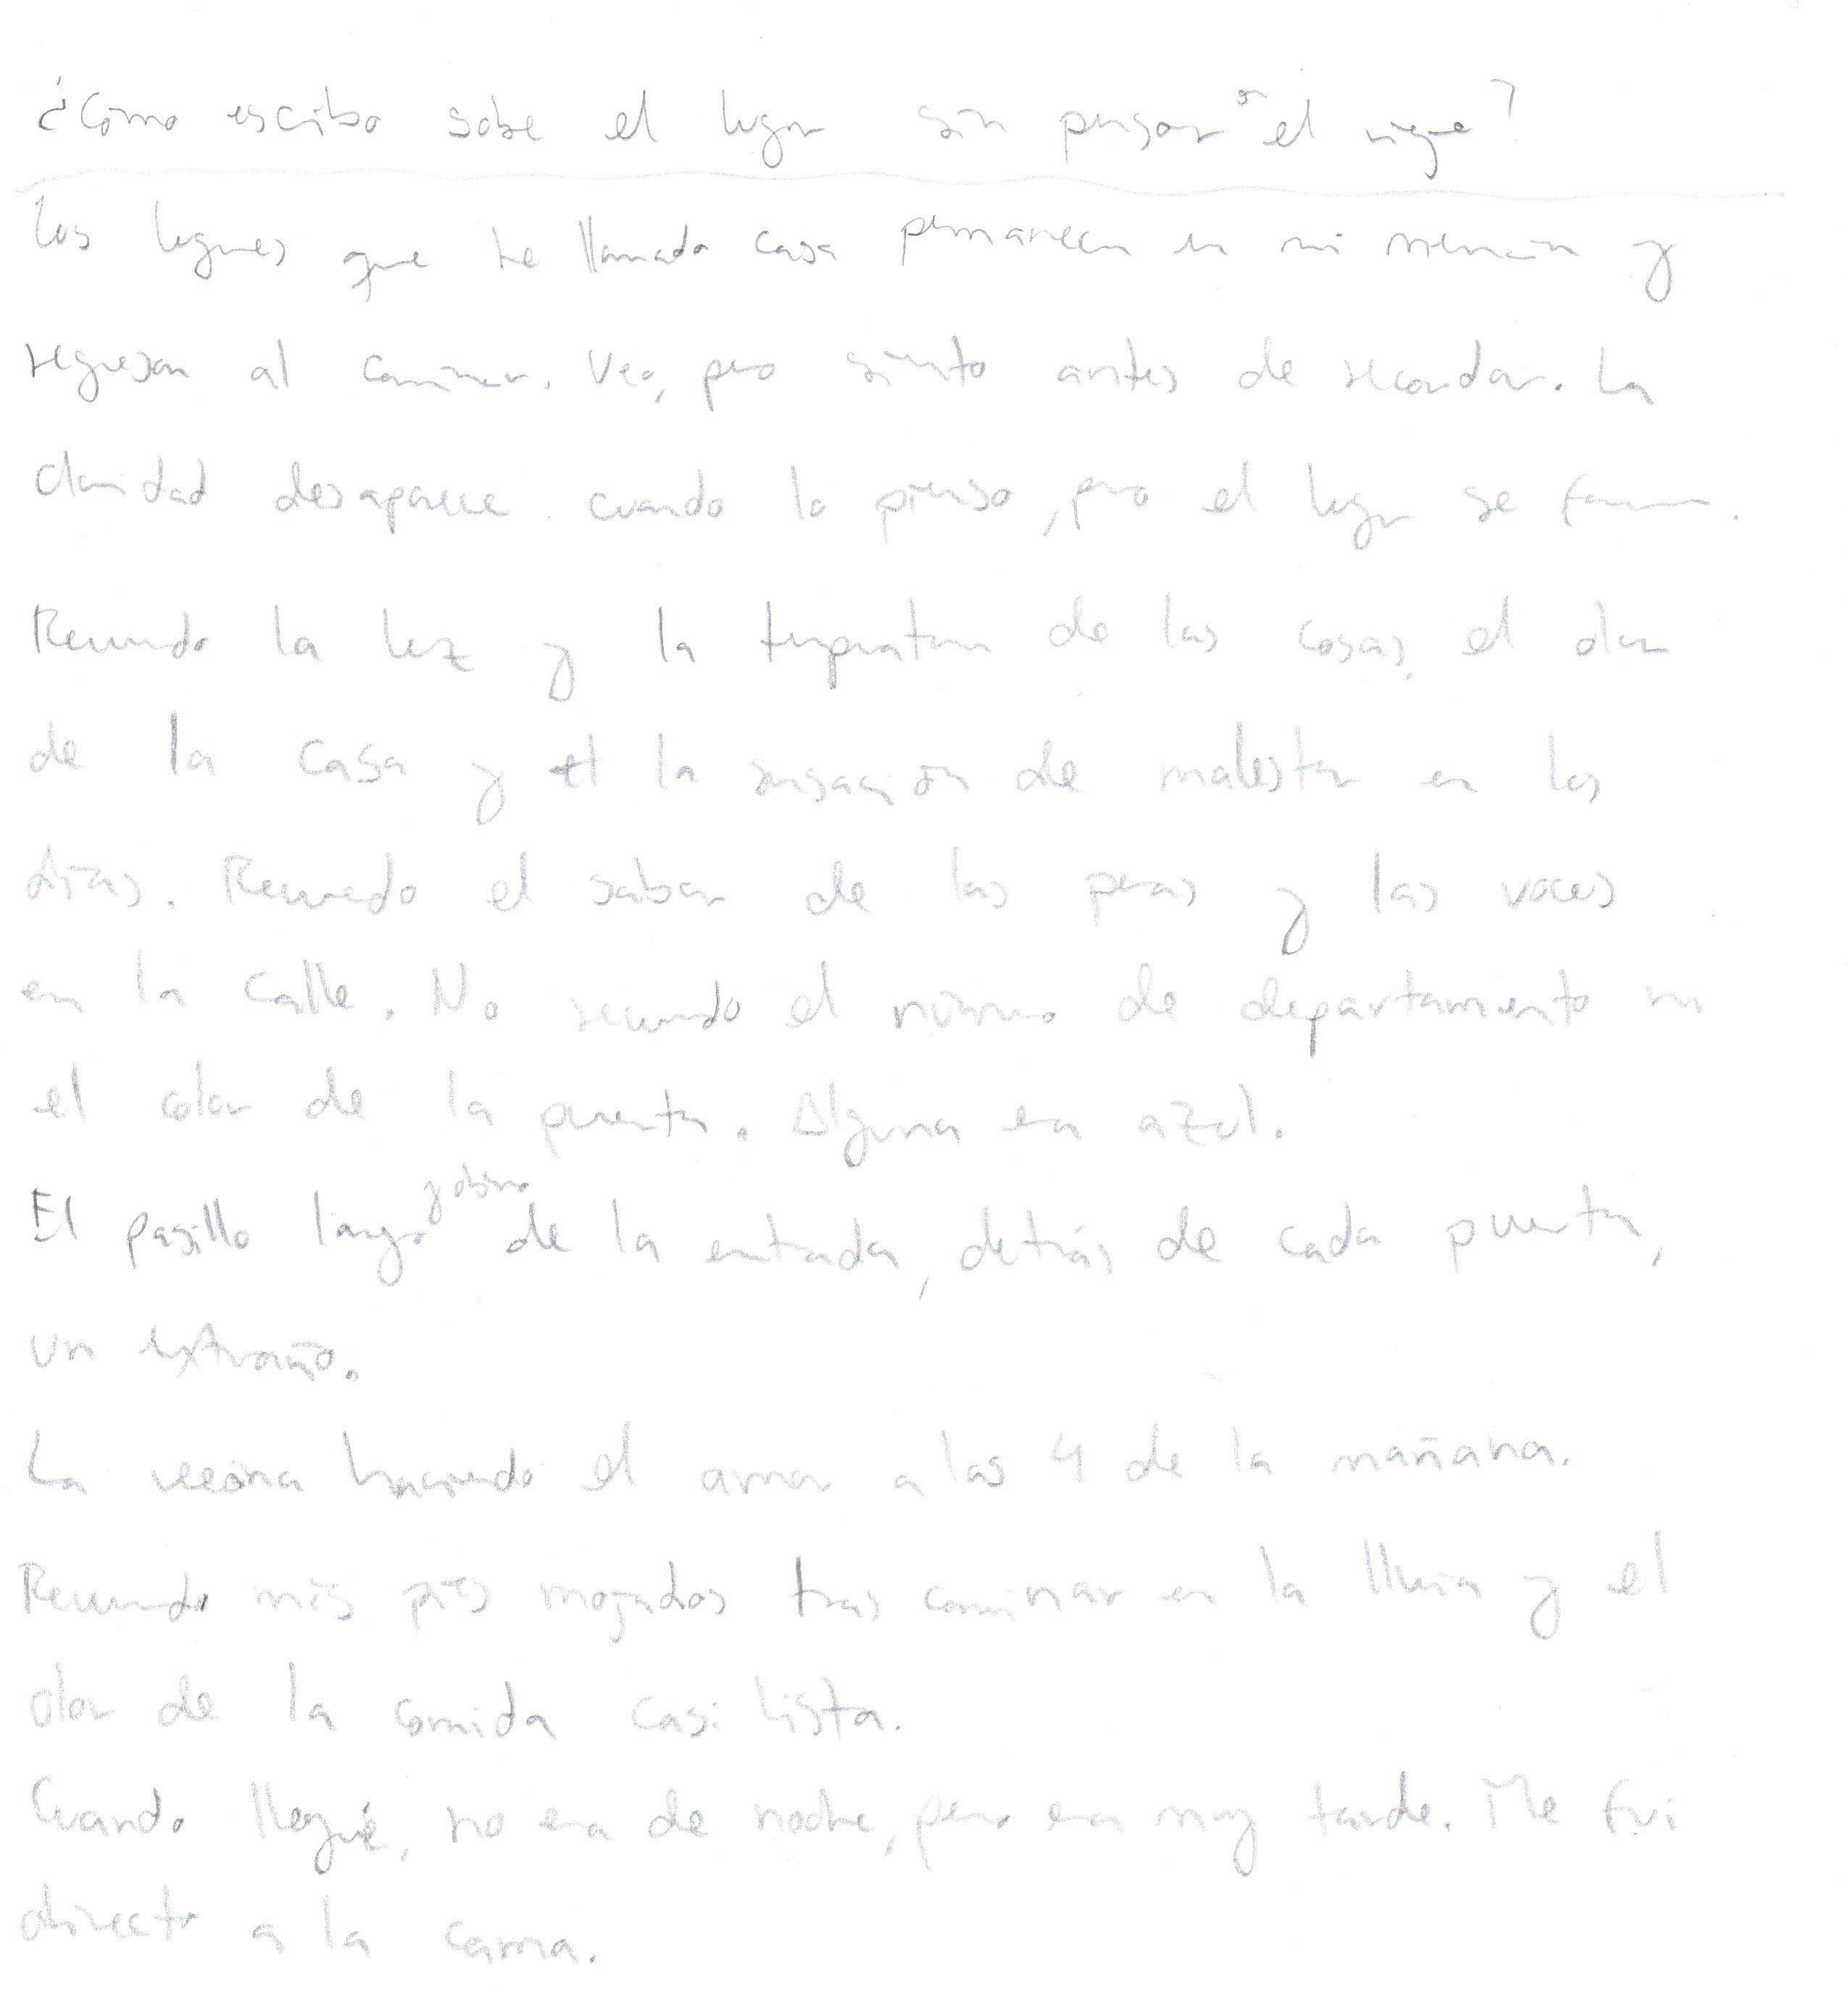 ¿Cómo escribo sobre el lugar sin pensar en el viaje?
Los lugares que he llamado casa permanecen en mi memoria y
regresan al caminar. Veo, pero siento antes de recordar. La
claridad desaparece cuando lo pienso, pero el lugar se forma.
Recuerdo la luz y la temperatura de las cosas, el olor
de la casa y la sensación de malestar en los
días. Recuerdo el sabor de las peras y las voces
en la calle. No recuerdo el número de departamento ni
el color de la puerta. Alguna era azul.
El pasillo largo y de la entrada, detrás de cada puerta,
un extraño.
La vecina haciendo el amor a las 4 de la mañana.
Recuerdo mis pies mojados tras caminar en la lluvia y el
olor de la comida casi lista.
Cuando llegué, no era de noche, pero era muy tarde. Me fui
directo a la cama.